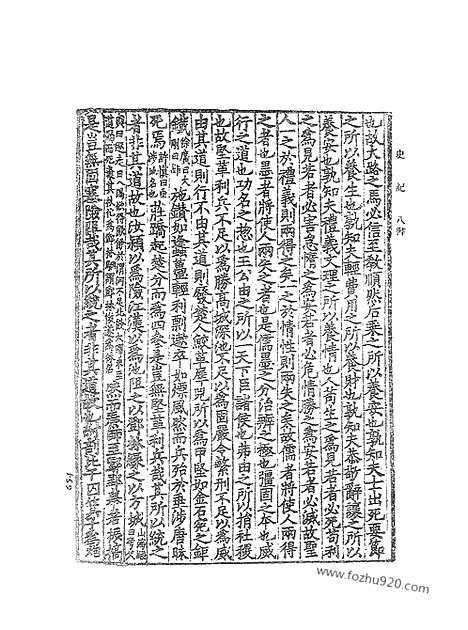 史記 八
也故大路之馬必信至教順然后乘之所以養安也孰知夫士出死要節
之所以養生也孰知夫輕費用之所以養財也孰知夫恭敬辭讓之所以
養安也孰知夫禮義文理之所以養情也人苟生之爲見若者必死苟利
之爲見若者必害怠惰之爲安若者必危情勝之爲安若者必滅故聖
人一之於禮義則兩得之矣一之於情性則兩失之矣故儒者將使人兩得
之者也墨者將使人兩失之者也是儒墨之分治辨之極也彊固之本也威
行之道也功名之緫也王公由之所以一天下臣諸侯也弗由之所以捐社稷
也故堅革利兵不足以爲勝高城深池不足以爲固嚴令繁刑不足以爲威
由其道則行不由其道則廢楚人鮫革犀兕所以爲甲堅如金石宛之鉅
鐵徐廣曰大剛曰鉅施鑽如蜂蠆輕利剽遬卒如熛風然而兵殆於垂涉唐昧
死焉許愼曰垂涉地名也莊蹻起楚分而爲四參是豈無堅革利兵哉其所以統之
者非其道故也汝潁以爲險江漢以爲池阻之以鄧林緣之以方城山海經
然而秦師至鄢郢舉若振槁
是豈無固塞險阻哉其所以統之者非其道故也紂剖比干囚箕子爲
www.fozhu920.com